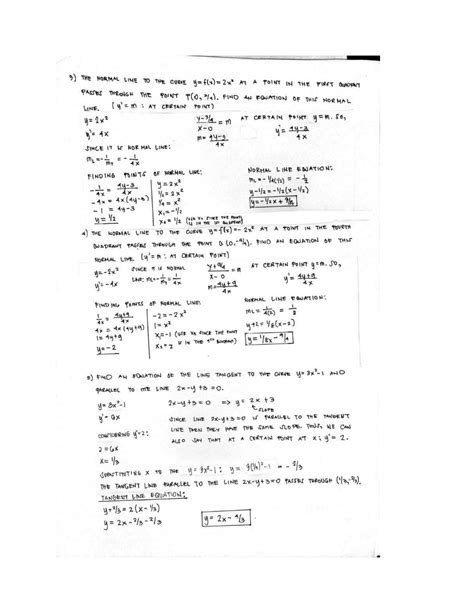 3) THE NORMAL LINE TO THE CURVE y=f(x)=2x² AT A POINT IN THE FIRST QUADRANT
PASSES THROUGH THE POINT P(0, 3/4). FIND AN EQUATION OF THIS NORMAL
LINE. (y'=m : AT CERTAIN POINT)
y=2x²
y'=4x
y-3/4 / x-0 = m
m = 4y-3 / 4x
AT CERTAIN POINT y=m. SO,
y' = 4y-3 / 4x
SINCE IT IS NORMAL LINE:
m₂=-1/m₁ = -1/4x
FINDING POINTS OF NORMAL LINE:
-1/4x = 4y-3 / 4x
-4x = 4x(4y-3)
-1 = 4y-3
y = 1/2
y=2x²
1/2=2x²
1/4=x²
x₁=-1/2
x₂=1/2
NORMAL LINE EQUATION:
m₂=-1/4(1/2) = -1/2
y-1/2=-1/2(x-1/2)
y=-1/2x+3/4
4) THE NORMAL LINE TO THE CURVE y=f(x)=-2x² AT A POINT IN THE FOURTH
QUADRANT PASSES THROUGH THE POINT (0,-9/4). FIND AN EQUATION OF THIS
NORMAL LINE. (y'=m : AT CERTAIN POINT)
y=-2x²
y'=-4x
SINCE IT IS NORMAL
LINE: m₂=-1/m₁=1/4x
y+9/4 / x-0 = m
m=4y+9 / 4x
AT CERTAIN POINT y=m. SO,
y'=4y+9 / 4x
FINDING POINTS OF NORMAL LINE:
1/4x = 4y+9 / 4x
4x = 4x(4y+9)
1=4y+9
y=-2
-2=-2x²
1=x²
x₁=-1
x₂=1
NORMAL LINE EQUATION:
m₂=1/4(2) = 1/8
y+2=1/8(x-2)
y=1/8x-9/4
5) FIND AN EQUATION OF THE LINE TANGENT TO THE CURVE y=3x²-1 AND
PARALLEL TO THE LINE 2x-y+3=0.
y=3x²-1
y'=6x
2x-y+3=0 ⇒ y=2x+3
SLOPE
SINCE LINE 2x-y+3=0 IS PARALLEL TO THE TANGENT
LINE THEN THEY HAVE THE SAME SLOPE. THUS, WE CAN
ALSO SAY THAT AT A CERTAIN POINT AT x; y'=2.
CONSIDERING y'=2:
2=6x
x=1/3
SUBSTITUTING X TO THE y=3x²-1: y=3(1/3)²-1=-2/3
THE TANGENT LINE PARALLEL TO THE LINE 2x-y+3=0 PASSES THROUGH (1/3,-2/3).
TANGENT LINE EQUATION:
y+2/3=2(x-1/3)
y=2x-2/3-2/3
y=2x-4/3